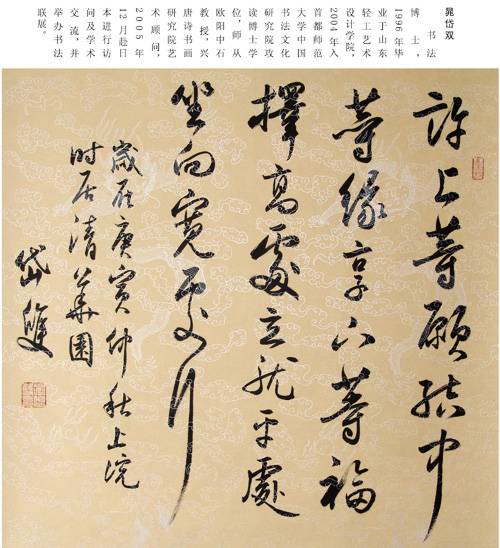 晁岱双
书法
博士，
1996年毕
业于山东
轻工艺术
设计学院，
2004年入
首都师范
大学中国
书法文化
研究院攻
读博士学
位，师从
欧阳中石
教授，兴
唐诗书画
研究院艺
术顾问，
2005年
12月赴日
本进行访
问及学术
交流，并
举办书法
联展。
許上等願結中
等緣享下等福
擇高處立就平處
坐向寬處行
歲在庚寅仲秋上浣
时居清華園
岱雙